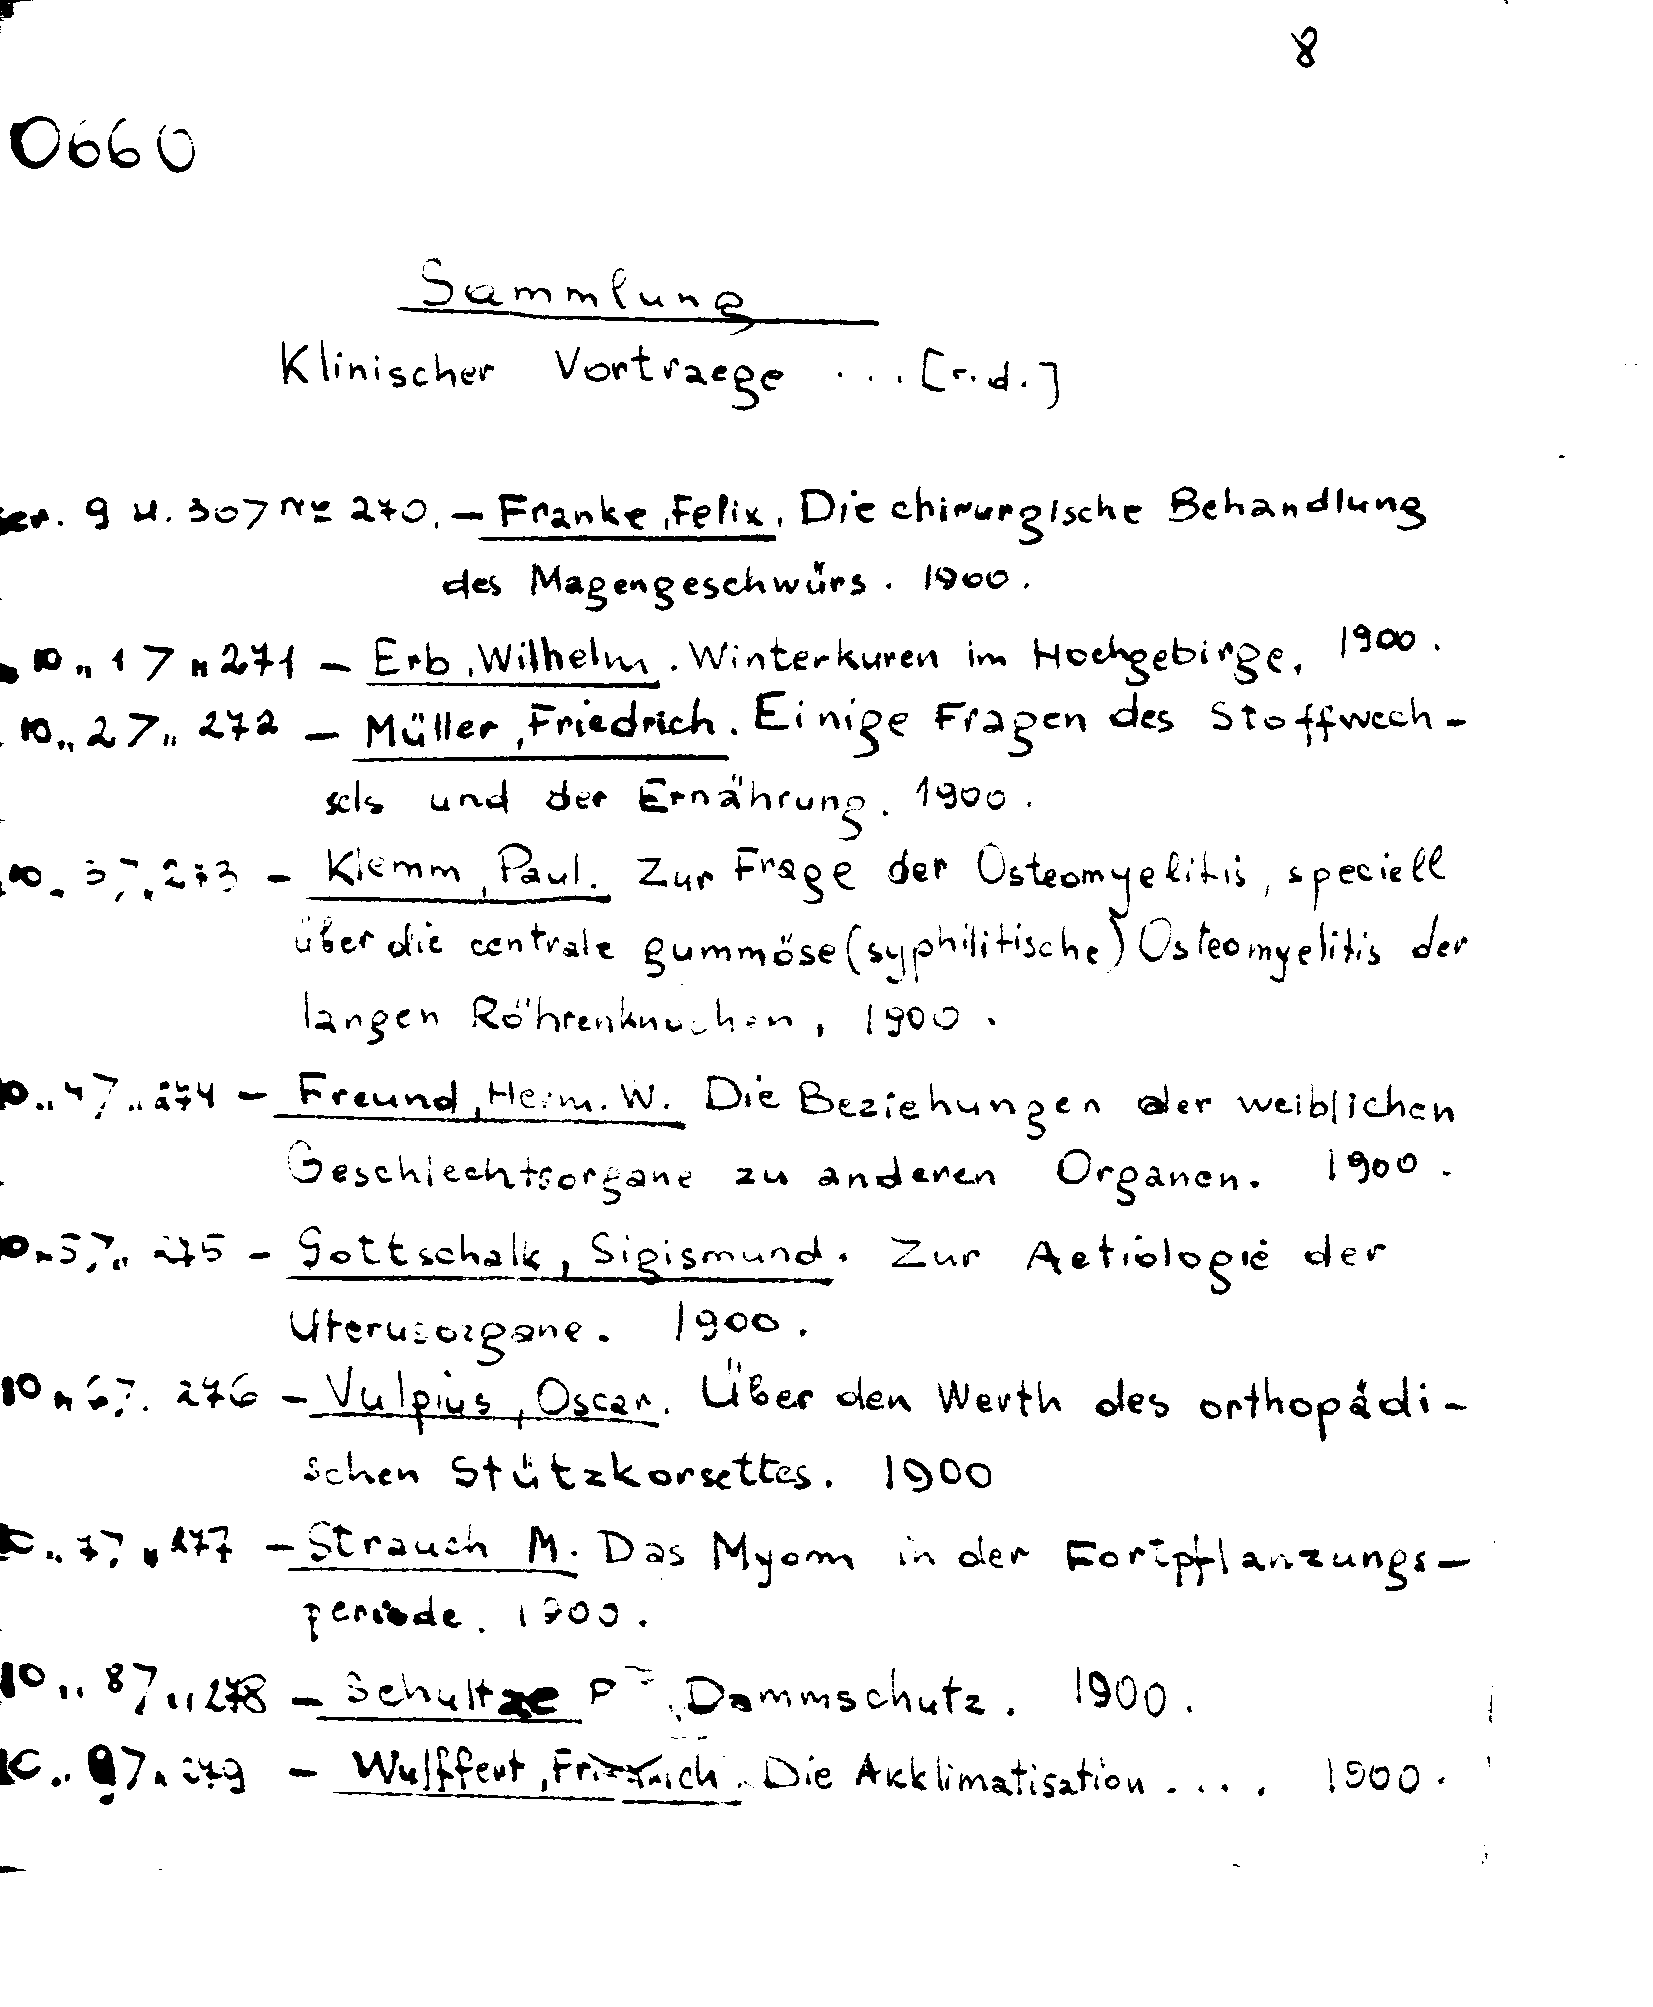 8
0660
Sammlung
Klinischer Vortraege ... [r.d.]
ser. 9 H. 30 7 No 270. — Franke, Felix. Die chirurgische Behandlung
des Magengeschwürs. 1900.
10 „ 1 7 „ 271 — Erb, Wilhelm. Winterkuren im Hochgebirge, 1900.
10 „ 2 7 „ 272 — Müller, Friedrich. Einige Fragen des Stoffwech-
sels und der Ernährung. 1900.
10 „ 3 7 „ 273 — Klemm, Paul. Zur Frage der Osteomyelitis, speciell
über die centrale gummöse (syphilitische) Osteomyelitis der
langen Röhrenknochen, 1900.
10 „ 4 7 „ 274 — Freund, Herm. W. Die Beziehungen der weiblichen
Geschlechtsorgane zu anderen Organen. 1900.
10 „ 5 7 „ 275 — Gottschalk, Sigismund. Zur Aetiologie der
Uterusorgane. 1900.
10 „ 6 7 „ 276 — Vulpius, Oscar. Über den Werth des orthopädi-
schen Stützkorsettes. 1900
10 „ 7 7 „ 277 — Strauch M. Das Myom in der Fortpflanzungs-
periode. 1900.
10 „ 8 7 „ 278 — Schultze P. Dammschutz. 1900.
10 „ 9 7 „ 279 — Wulffert, Friedrich. Die Akklimatisation .... 1900.